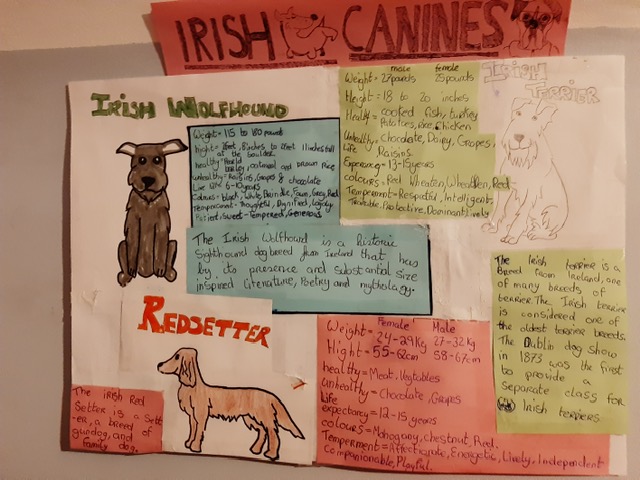 IRISH CANINES
IRISH WOLFHOUND
Weight= 115 to 180 pounds
at the shoulder
healthy= barley, oatmeal and brown rice
unhealthy= Raisins, Grapes & chocolate
6-10years
Colours= black, White, Brindle, Fawn, Grey, Red
Temperament= Thoughtful, Dignified,
Patient, Sweet-Tempered, Generous
The Irish Wolfhound is a Historic
Sighthound dog breed from Ireland that has
by its presence and substantial size
inspired literature, Poetry and mythology.
male female
Weight= 27pounds 25pounds
Height= 18 to 20 inches
Healthy= cooked fish, turkey
Potatoes, rice, Chicken
Unhealthy= Chocolate, Dairy, Grapes,
Life Raisins
Expectency= 13-15years
colours= Red Wheaten, Wheaten, Red
Temperment= Respectful, Intelligent,
Trainable, Protective, Dominant, lively
IRISH
TERRIER
The Irish terrier is a
Breed from Ireland, one
of many breeds of
terrier. The Irish terrier
is considered one of
the oldest terrier breeds.
The Dublin dog show
in 1873 was the first
to provide a
separate class for
Irish terriers
REDSETTER
The IRISH Red
Setter is a Sett
-er, a breed of
gundog, and
family dog.
Female Male
Weight= 24-29kg 27=32kg
Hight= 55-62cm 58-67cm
healthy= Meat, Vegtables
Unhealthy= Chocolate, Grapes
Life
expectancy= 12-15, years
colours= Mahogany, Chestnut Red.
Temperment= Affectionate, Energetic, Lively, Independent
Companionable, Playful.